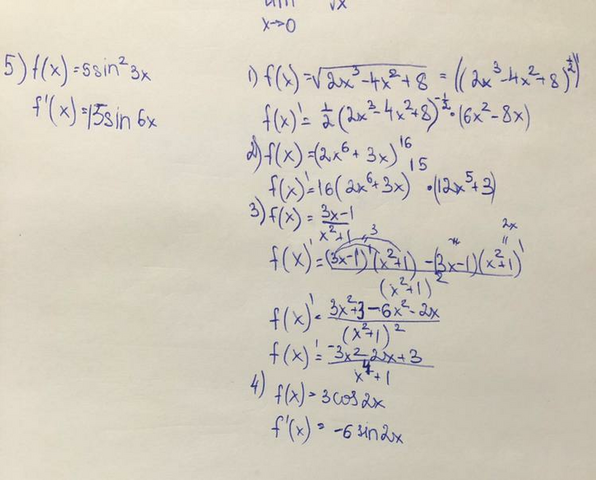 lim √x
x→0
5) f(x) = 5sin²3x
f'(x) = 15sin 6x
1) f(x) = √(2x³-4x²+8) = ((2x³-4x²+8)^½)'
f(x)' = ½(2x³-4x²+8)^-½ · (6x²-8x)
2) f(x) = (2x⁶+3x)^16
f(x)' = 16(2x⁶+3x)^15 · (12x⁵+3)
3) f(x) = (3x-1)/(x²+1)
3 2x
f(x)' = ((3x-1)'(x²+1) - (3x-1)(x²+1)')/(x²+1)²
f(x)' = (3x²+3-6x²-2x)/(x²+1)²
f(x)' = (-3x²-2x+3)/(x⁴+1)
4) f(x) = 3cos2x
f'(x) = -6sin2x